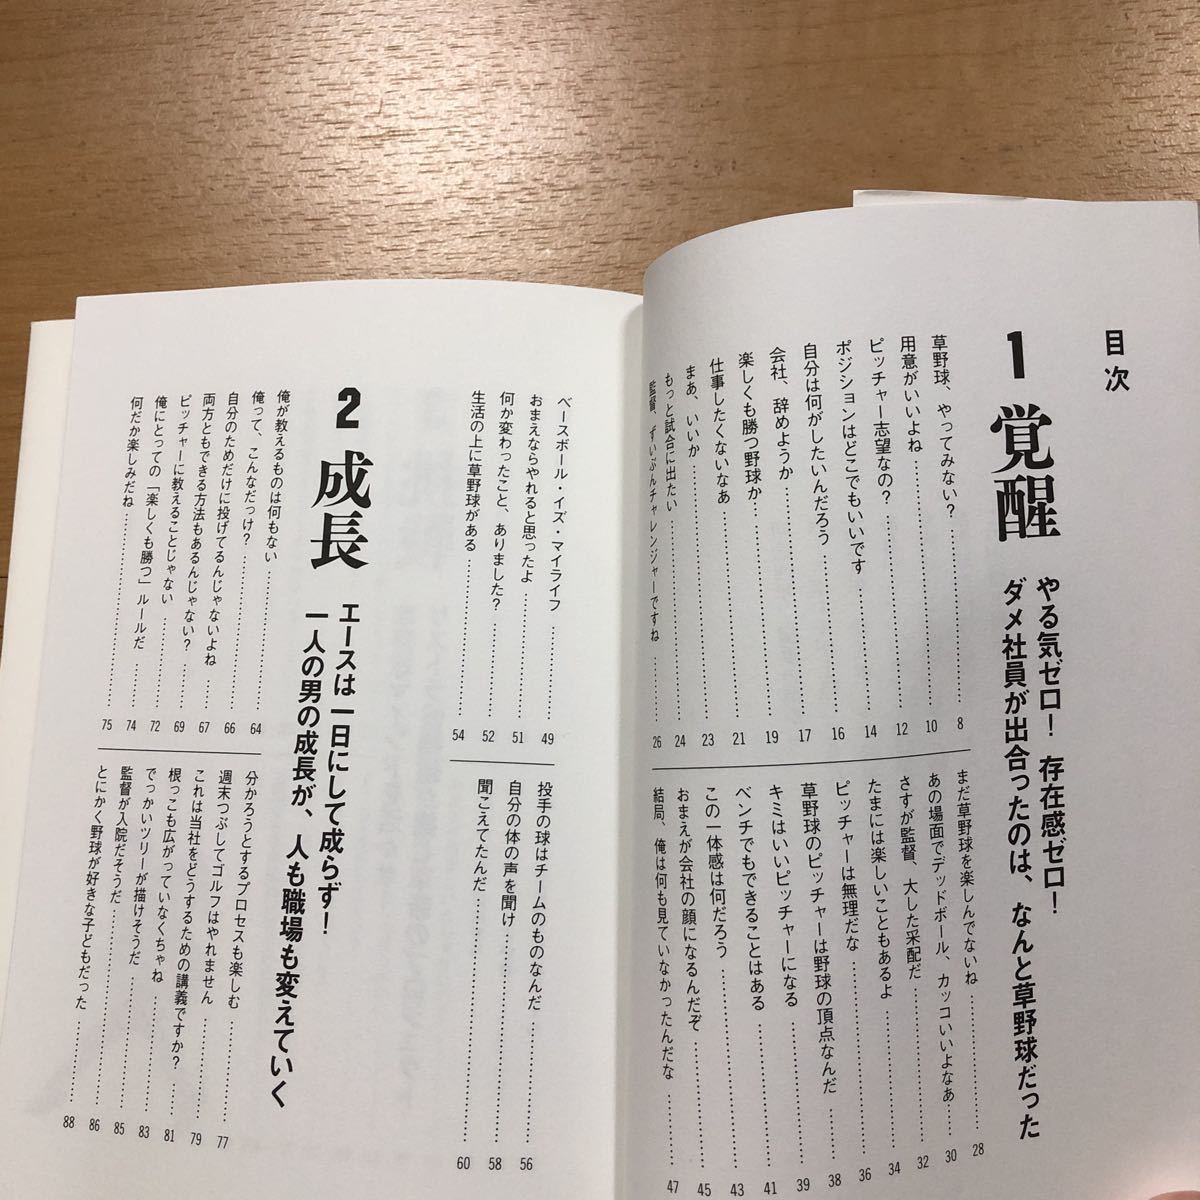 目次
1 覚醒
やる気ゼロ！ 存在感ゼロ！
ダメ社員が出合ったのは、なんと草野球だった
草野球、やってみない？ 8
用意がいいよね 10
ピッチャー志望なの？ 12
ポジションはどこでもいいです 14
自分は何がしたいんだろう 16
会社、辞めようか 17
楽しくも勝つ野球か 19
仕事したくないなあ 21
まあ、いいか 23
もっと試合に出たい 24
監督、ずいぶんチャレンジャーですね 26
まだ草野球を楽しんでないね 28
あの場面でデッドボール、カッコいいよなあ 30
さすが監督、大した采配だ 32
たまには楽しいこともあるよ 34
ピッチャーは無理だな 36
草野球のピッチャーは野球の頂点なんだ 38
キミはいいピッチャーになる 39
ベンチでもできることはある 41
この一体感は何だろう 43
おまえが会社の顔になるんだぞ 45
結局、俺は何も見ていなかったんだな 47
ベースボール・イズ・マイライフ 49
おまえならやれると思ったよ 51
何か変わったこと、ありました？ 52
生活の上に草野球がある 54
投手の球はチームのものなんだ 56
自分の体の声を聞け 58
聞こえてたんだ 60
2 成長
エースは一日にして成らず！
一人の男の成長が、人も職場も変えていく
俺が教えるものは何もない 64
俺って、こんなだっけ？ 66
自分のためだけに投げてるんじゃないよね 67
両方ともできる方法もあるんじゃない？ 69
ピッチャーに教えることじゃない 72
俺にとっての「楽しくも勝つ」ルールだ 74
何だか楽しみだね 75
分かろうとするプロセスも楽しむ 77
週末つぶしてゴルフはやれません 79
これは当社をどうするための講義ですか？ 81
根っこも広がっていなくちゃね 83
でっかいツリーが描けそうだ 85
監督が入院だそうだ 86
とにかく野球が好きな子どもだった 88